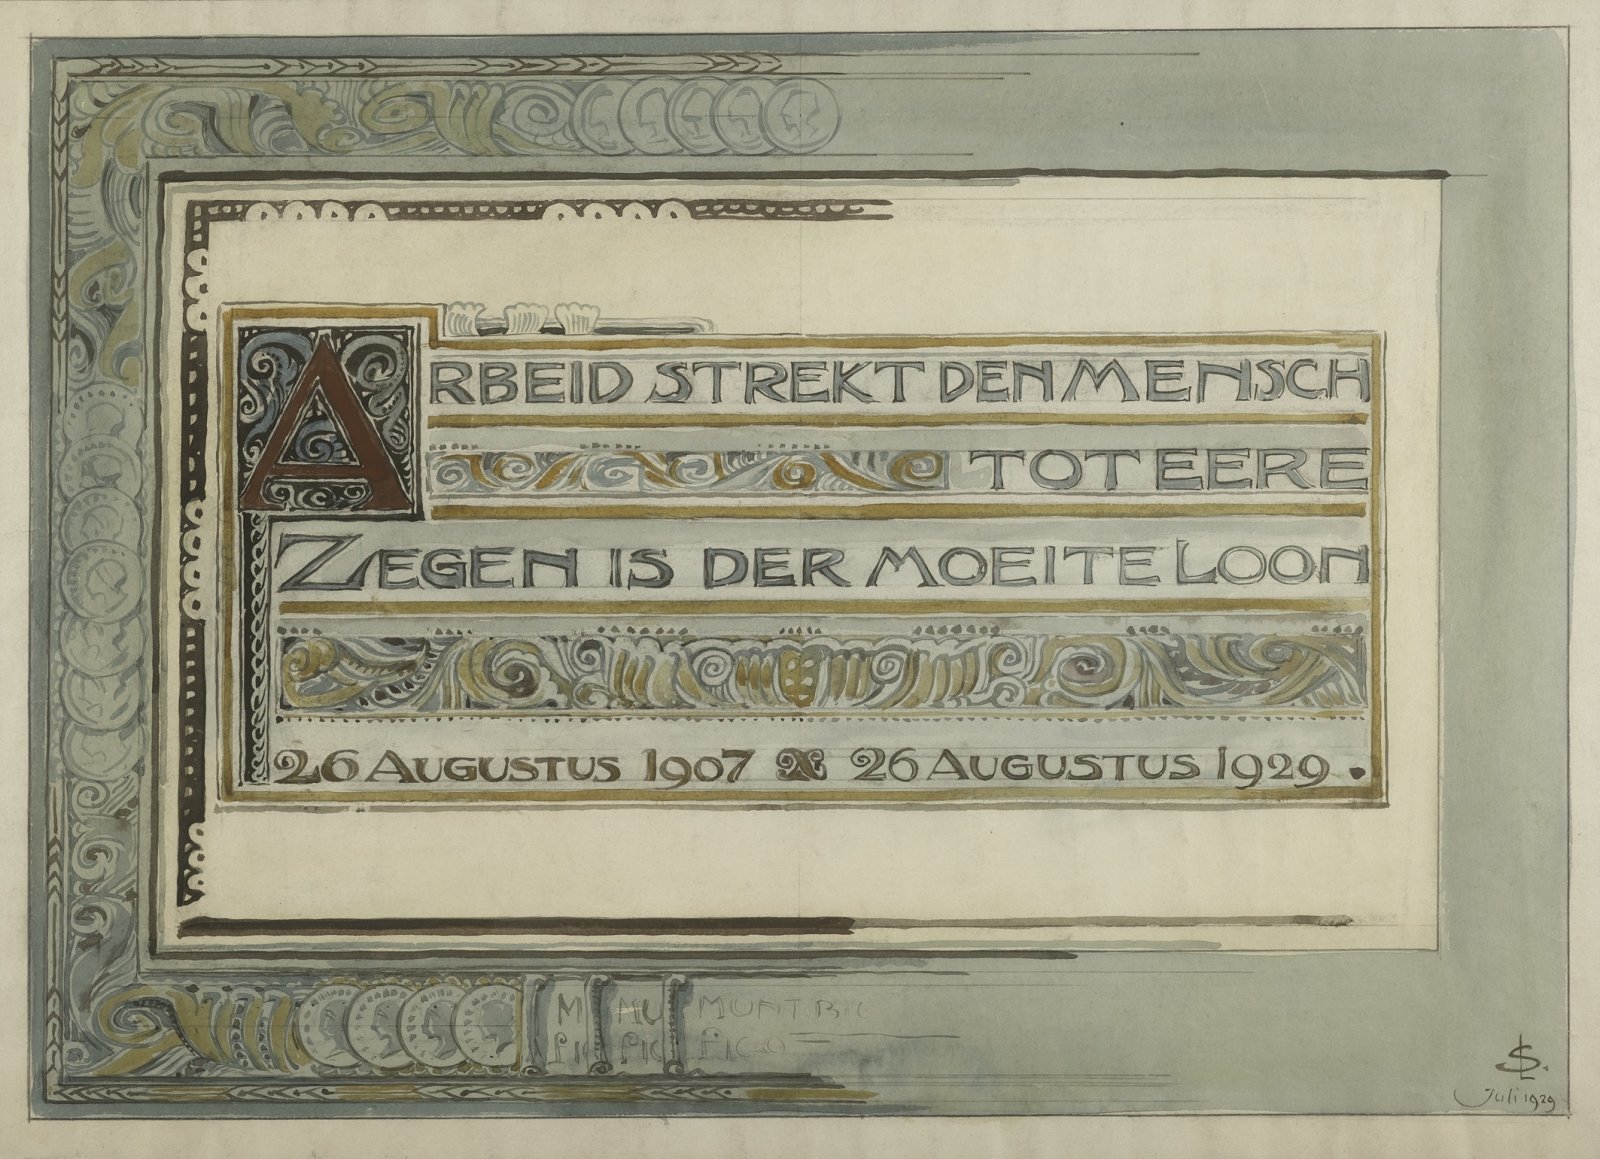 ARBEID STREKT DEN MENSCH
TOT EERE
ZEGEN IS DER MOEITE LOON
26 AUGUSTUS 1907 26 AUGUSTUS 1929.
M MU MUNTBIL
SL.
Juli 1929